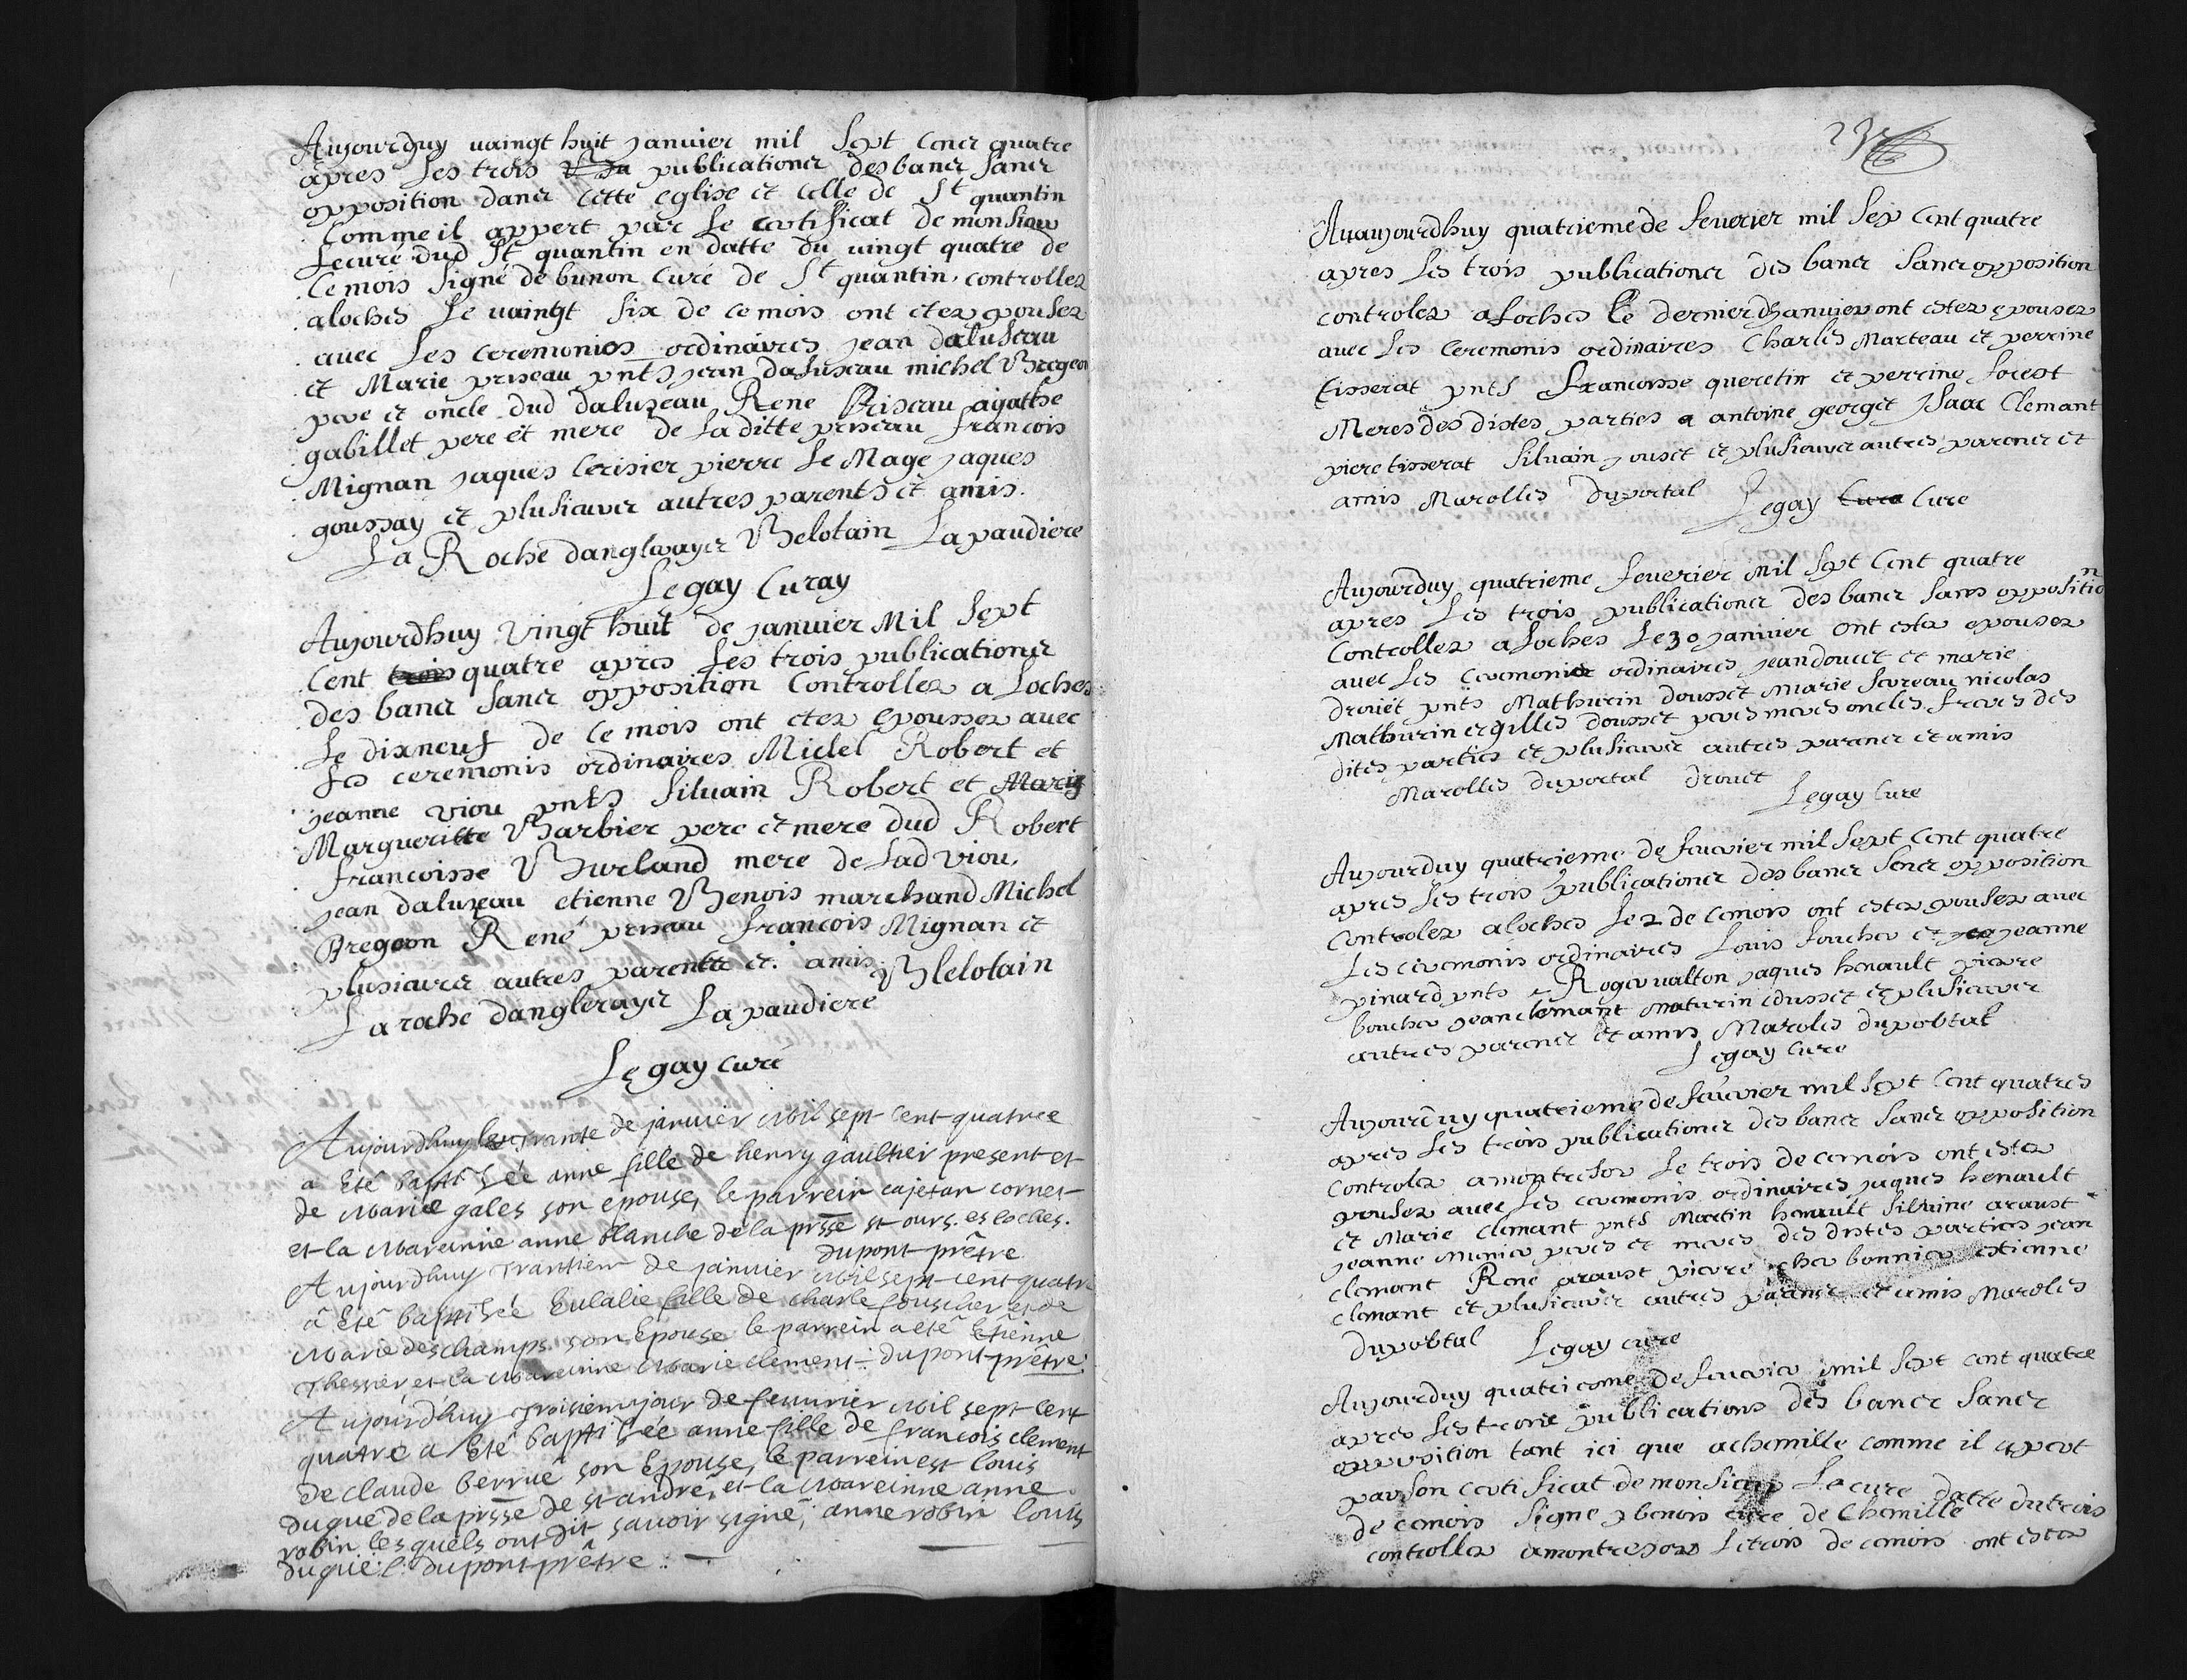 Aujourdhuy uaingt huit januier mil sept cencz quatre
apres les trois publicationcz des bancz sancz
opposition dancz cette eglise et celle de St quantin
comme il appert par le certificat de monsieur
lecuré dud St quantin en datte du uingt quatre de
ce mois signé de bunon curé de St quantin controllez
aloches le uaingt six de ce mois ont etez epousez
auec les ceremonies ordinaires jean daluseau
et Marie priseau pnts jean daluseau michel Bregeon
pere et oncle dud daluzeau Rene Priseau agathe
gabillet pere et mere de laditte priseau francois
Mignan jaques Cerisier pierre le Mage jaques
goussay et plusieurcz autres parents et amis.
La Roche danglerayez Belotain Lapaudiere
Legay Curay
Aujourdhuy Vingt huit de januier Mil sept
Cent trois quatre apres les trois publicationcz
des bancz sancz opposition Controllez a Loches
Le dixneuf de ce mois ont etez epoussez auec
les ceremonis ordinaires Michel Robert et
jeanne viou pnts siluain Robert et Marie
Margueritte Barbier pere et mere dud Robert
francoisse Burland mere de lad viou.
jean daluzeau etienne Benois marchand Michel
Bregeon René priseau francois Mignan et
plusieurcz autres parentcz et amis Blelotain
La roche danglerayez Lapaudiere
Legay curé
Aujourdhuy trante de janvier Mil sept cent quatree
a Eté baptisée anne fille de henry gaultier present et
de Marie gales son epouse, le parrein cajetan cornet
et la Mareinne anne blanche de la prsse st ours. es loches.
dupont prêtre
Aujourdhuy trantiem de janvier Mil sept cent quatre
â Eté baptisée Eulalie fille de charle fouscher et de
Marie deschamps son Epouse le parrein a eté Etienne
Thessier et la Mareinne Marie clement: dupont prêtre:
Aujourd'huy troisiem jour de feuurier Mil sept cent
quatre a Eté baptisée anne fille de francois clement
de claude berruê son Epouse, le parrein est louis
duqué de la prsse de st andré, et la Mareinne anne
robin lesquels ont dit savoir signé, anne robin louis
duqué: dupont prêtre:
23
Auaujourdhuy quatrieme de feuerier mil sep cent quatre
apres les trois publicationcz des bancz sancz opposition
controlez a Loches le dernier dhanuier ont estez epousez
auec les ceremonis ordinaires Charles Marteau et perrine
tisserat pnts francoisse queretin et perrine forest
Meres des distes parties a antoine georget jsaac Clemant
piere tisserat siluain jouset et plusieurcz autres parencz et
amis Marolles Duportal Legay Cure Cure
Aujourduy quatrieme feuerier Mil sept Cent quatre
apres les trois publicationcz des bancz sans opposition
Controllez a Loches le 30 januier ont estez epousez
auec les ceremonies ordinaires jean doucet et marie
drouet pnts Mathurin dousset Marie sereau nicolas
Mathurin et gilles dousset peres meres oncles freres des
dites parties et plusieurcz autres parencz et amis
Marolles duportal drouet
Legay Cure
Aujourduy quatrieme de feuerier mil sept cent quatre
apres les trois publicationcz des bancz sencz opposition
Controlez aloches le 2 de cemois ont estez epousez auec
les ceremonis ordinaires Louis foucher et jeanne
pinard pnts Roger ualton jaques henault pierre
boucher jean clemant maturin dusset et plusieurcz
autres parencz et amis Maroles duportal
Legay Cure
Aujourduy quatrieme de feuerier mil sept cent quatres
apres les trois publicationcz des bancz sancz opposition
Controlez amontresor le trois de cemois ont estez
epousez auec les ceremonis ordinaires jaques henault
et Marie clemant pnts Martin henault siluine arault
jeanne Munier peres et meres des distes parties jean
clemant Rene arault pierre cherbonnier estienne
clemant et plusieurcz autres parencz et amis Maroles
duportal Legay cure
Aujourduy quatrieme de feuerier mil sept cent quatre
apres les trois publications des bancz sancz
opposition tant ici que achemille comme il apert
par son certificat de monsieur le cure datte dutrois
de cemois signe benois cure de Chemille
controllez amontresor le trois de cemois ont estez